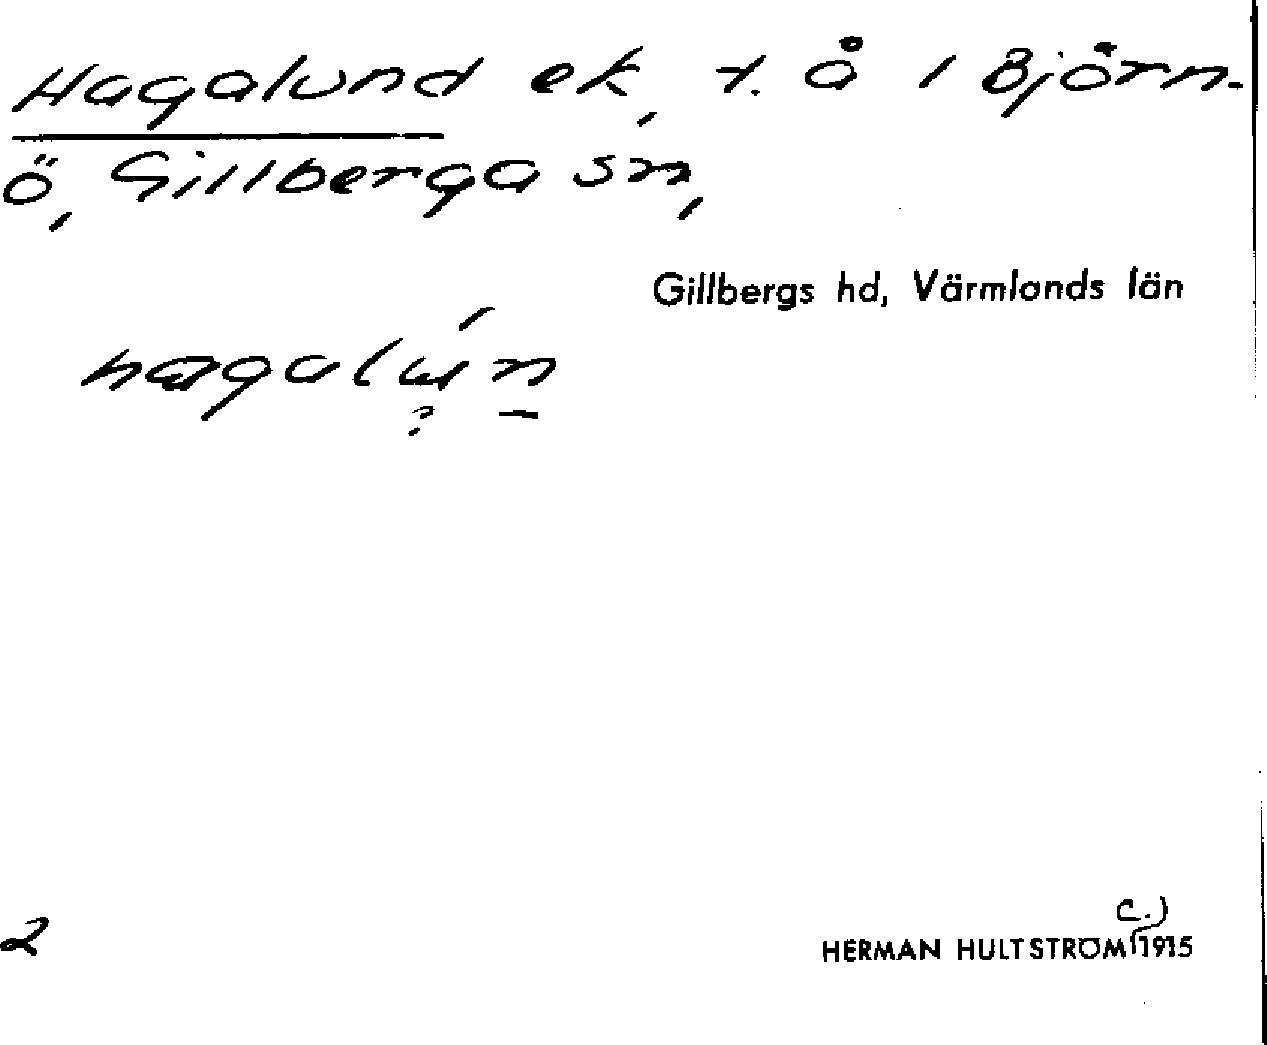 Hagalund ek, t. å / Björn-
ö, Gillberga sn,
Gillbergs hd, Värmlands län
2
c.)
HERMAN HULTSTRÖM 1915